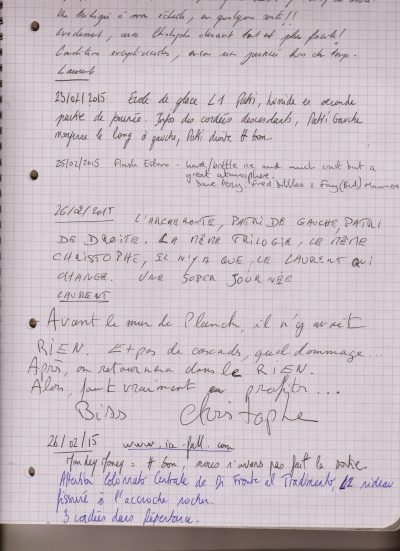 Une trilogie à mon échelle, en quelques sorte !!
Evidement, avec Christophe devant tout est plus facile !
Condition exceptionnelles, encore une journée hors du temps.
Laurent
23/02/2015 Ecole de glace L1 Patri, humide en seconde
partie de journée. Infos des cordées descendants, Patri Gauche
le long à gauche, Patri droite # bon
25/02/2015 Flash Estivo - hard/brittle ice and much crust but a
great atmosphere.
Dave Perry, Fred
26/02/2015 L'ACHERONTE, PATRI DE GAUCHE, PATRI
DE DROITE. LA MÊME TRILOGIE, LE MÊME
CHRISTOPHE, IL N'Y A QUE LE LAURENT QUI
CHANGE. UNE SUPER JOURNÉE
LAURENT
Avant le mur de Planck, il n'y avait
RIEN. Et pas de cascade, quel dommage...
Après, on retournera dans le RIEN.
Alors, faut vraiment en profiter...
Biss Christophe
26/02/15 www.ice-fall.com
Monday Money = # bon, nous n'avons pas fait la sortie.
Attention Colonnato Centrale de Di Fronte al Tradimento, L2 rideau
fissuré à l'accroche rocher.
3 cordées dans Repentance.